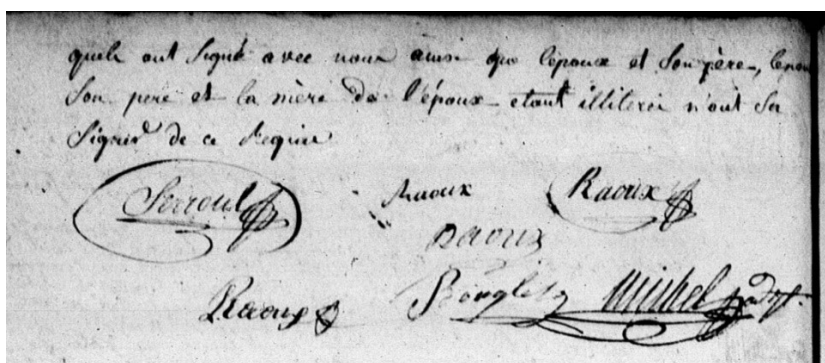 quels ont signé avec nous ainsi que l'époux et son père,
son père et la mère de l'époux étant illiteré n'ont su
signer de ce requis
Raoux Raoux
Raoux
Raoux Michel